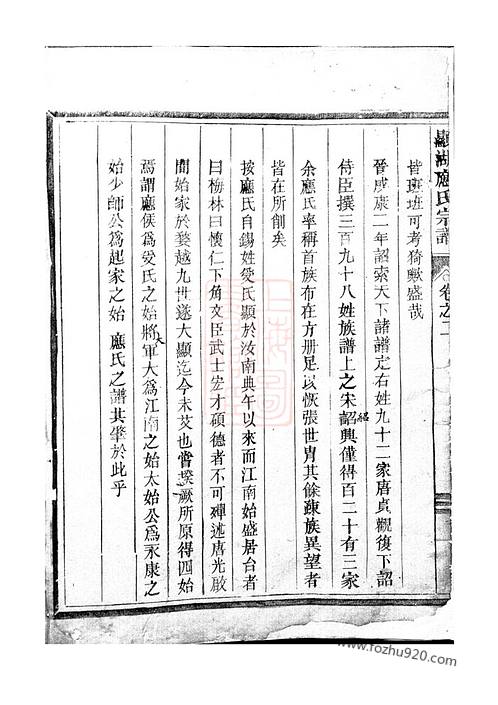 顯湖應氏宗譜
卷之二
皆班班可考猗歟盛哉
晉咸康二年詔索天下諸譜定右姓九十二家唐貞觀復下詔
侍臣撰三百九十八姓族譜上之宋韶興僅得百二十有三家
紹
余應氏率稱首族布在方册足以恢張世胄其餘踈族異望者
皆在所削矣
按應氏自錫姓受氏顯於汝南典午以來而江南始盛居台者
曰梅林曰懷仁下角文臣武士宏才碩德者不可殫述唐光啟
間始家於婺越九世遂大顯迄今未艾也嘗揆厥所原得四始
焉謂應侯爲受氏之始將軍大爲江南之始太始公爲永康之
始少師公爲起家之始 應氏之譜其肇於此乎
www.fozhu920.com